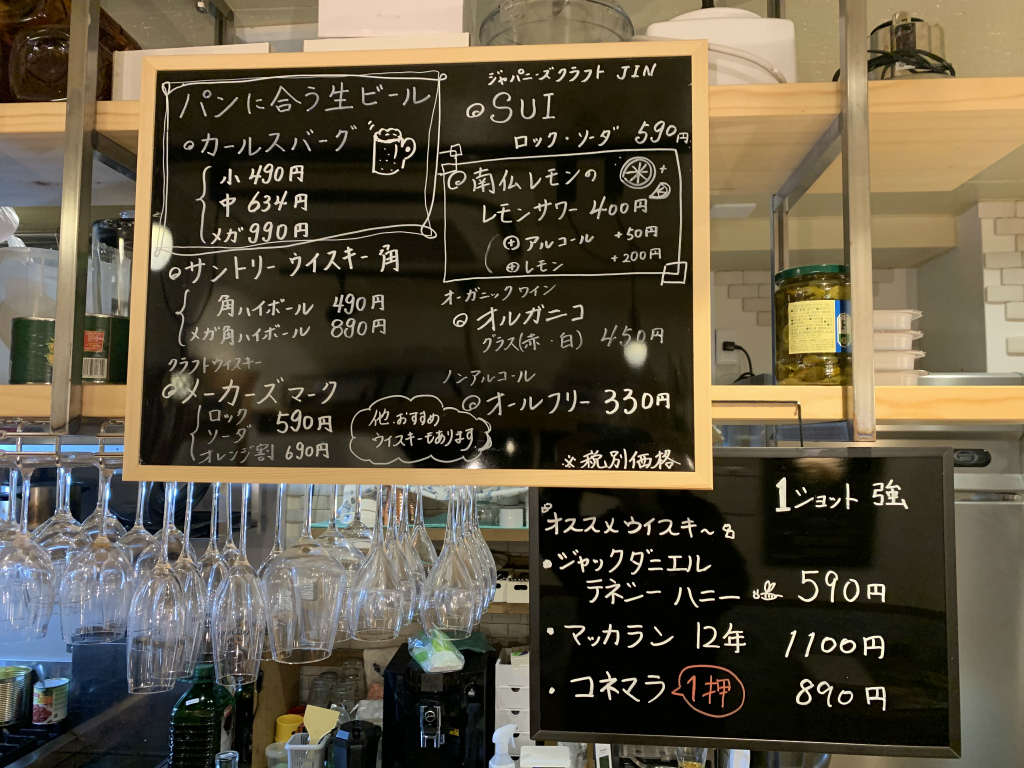 パンに合う生ビール
カールスバーグ
小 490円
中 634円
メガ 990円
サントリー ウイスキー 角
角ハイボール 490円
メガ角ハイボール 880円
クラフトウイスキー
メーカーズマーク
ロック
ソーダ 590円
オレンジ割 690円
他、おすすめ
ウイスキーもあります。
ジャパニーズクラフト JIN
SUI
ロック・ソーダ 590円
南仏レモンの
レモンサワー 400円
⊕アルコール +50円
⊕レモン +200円
オーガニックワイン
オルガニコ
グラス(赤・白) 450円
ノンアルコール
オールフリー 330円
※税別価格
1ショット 強
オススメウイスキー
・ジャックダニエル
テネシー ハニー 590円
・マッカラン 12年 1100円
・コネマラ 1押 890円